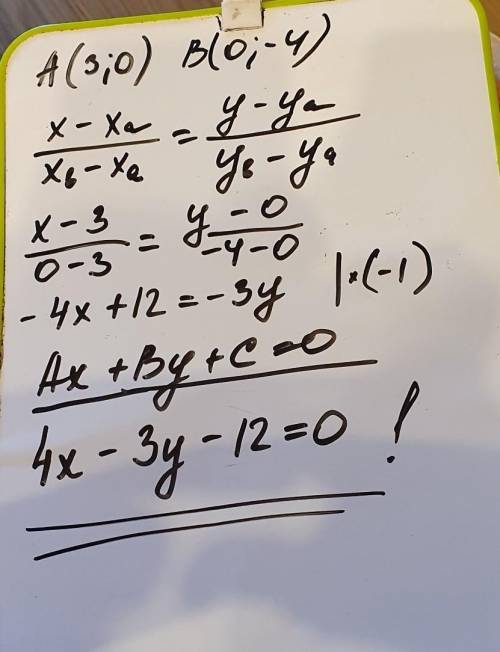 A(3;0) B(0;-4)
x - xa / xb - xa = y - ya / yb - ya
x - 3 / 0 - 3 = y - 0 / -4 - 0
- 4x + 12 = - 3y | × (-1)
Ax + By + C = 0
4x - 3y - 12 = 0 !